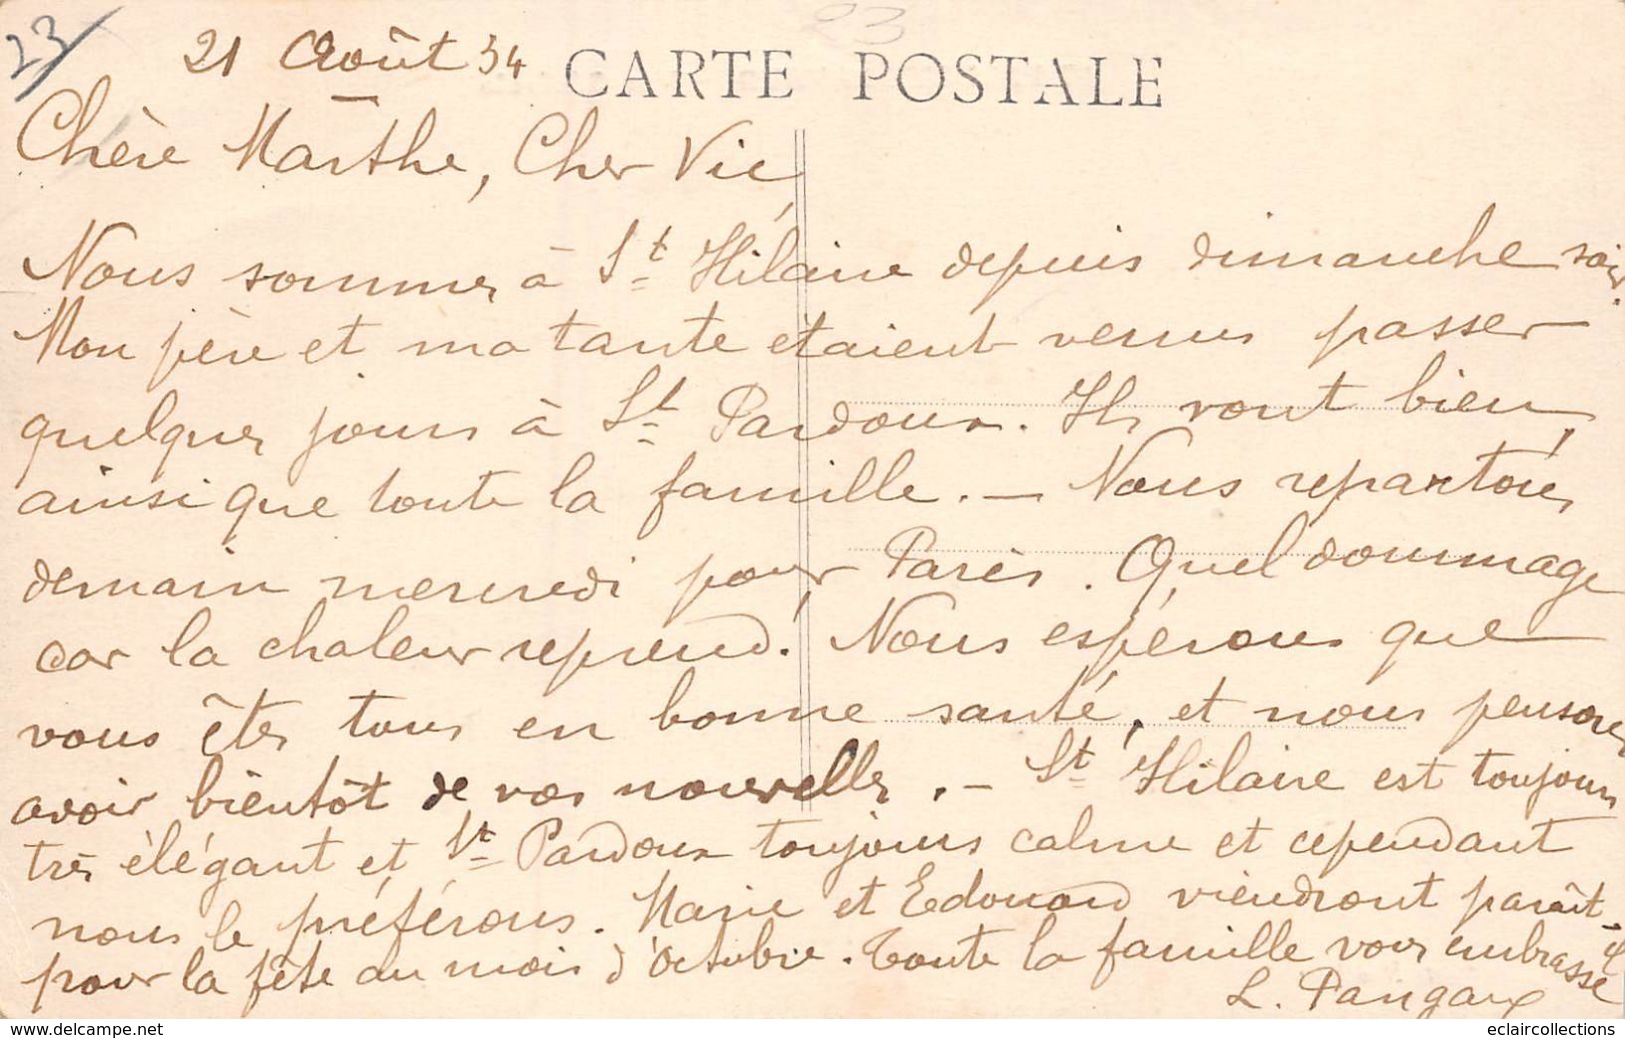 23
23
21 Août 34
CARTE POSTALE
Chère Marthe, Cher Vic,
Nous sommes à St Hilaire depuis dimanche soir.
Mon père et ma tante étaient venus passer
quelques jours à St Pardoux. Ils vont bien,
ainsi que toute la famille. — Nous repartons
demain mercredi pour Paris. Quel dommage
car la chaleur reprend! Nous espérons que
vous êtes tous en bonne santé, et nous pensons
avoir bientôt de vos nouvelles. — St Hilaire est toujours
très élégant et St Pardoux toujours calme et cependant
nous le préférons. Marie et Edouard viendront paraît-il
pour la fête au mois d'Octobre. Toute la famille vous embrasse
L. Pangaux
www.delcampe.net
eclaircollections